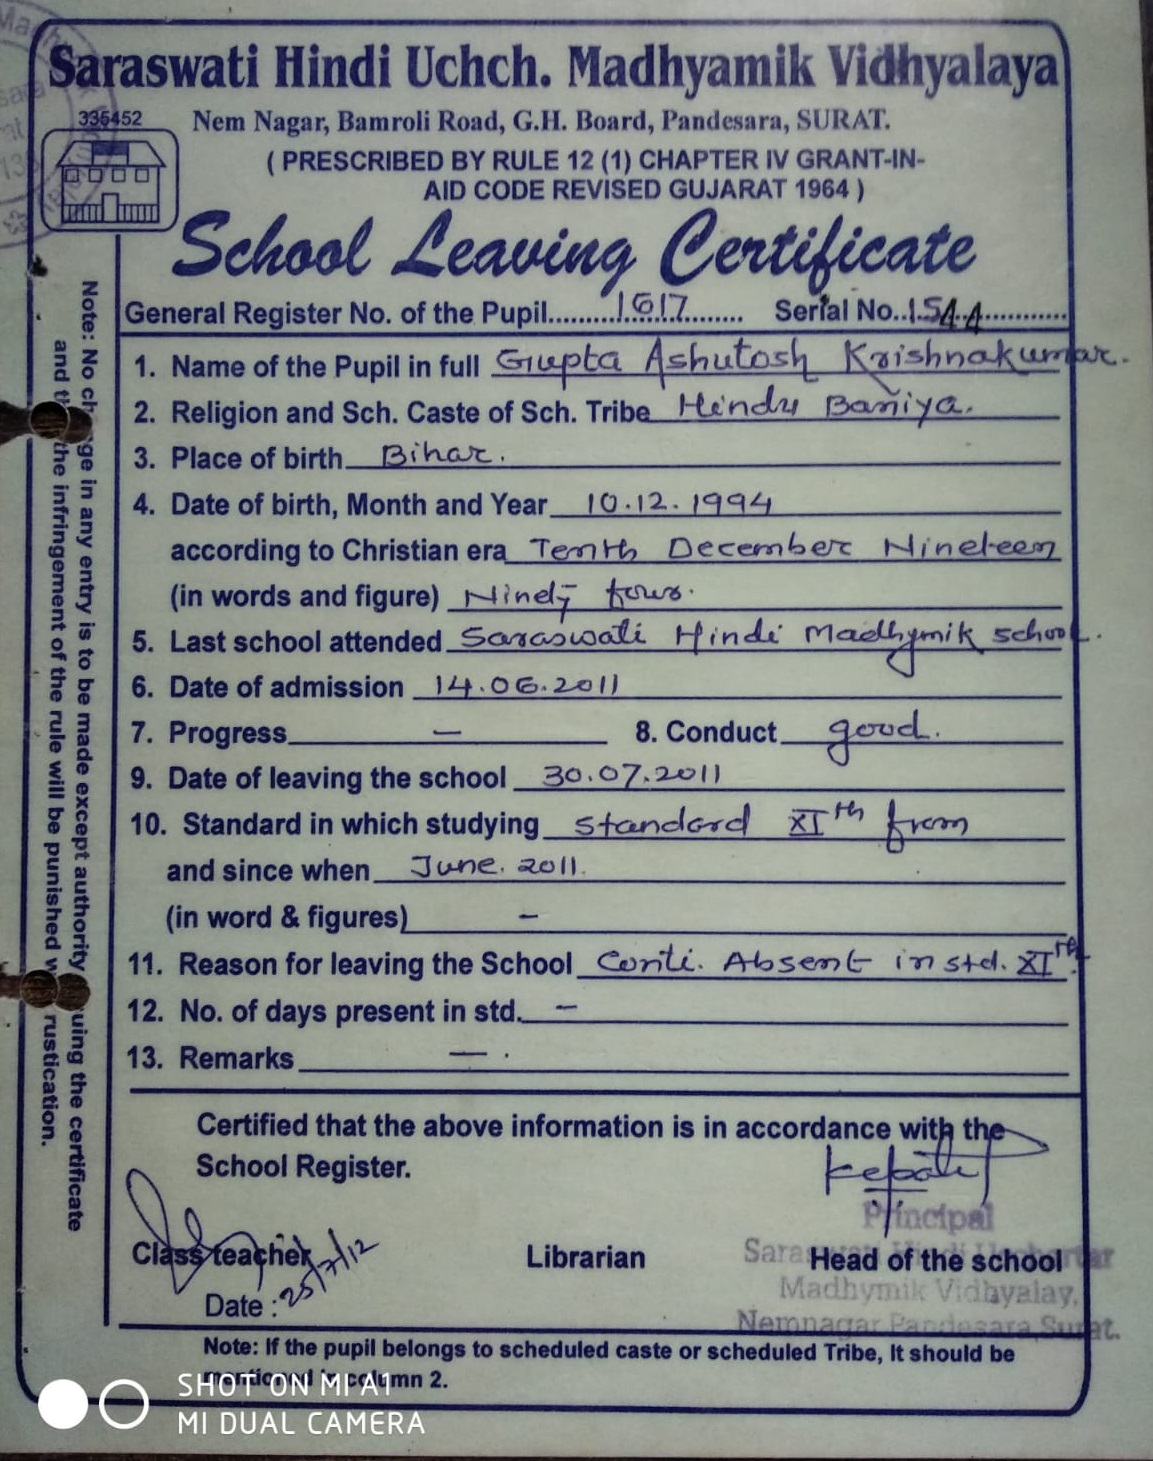 Saraswati Hindi Uchch. Madhyamik Vidhyalaya
336452
Nem Nagar, Bamroli Road, G.H. Board, Pandesara, SURAT.
( PRESCRIBED BY RULE 12 (1) CHAPTER IV GRANT-IN-
AID CODE REVISED GUJARAT 1964 )
School Leaving Certificate
General Register No. of the Pupil..........1617........ Serial No..1544............
1. Name of the Pupil in full Gupta Ashutosh Krishnakumar.
2. Religion and Sch. Caste of Sch. Tribe Hindu Baniya.
3. Place of birth Bihar.
4. Date of birth, Month and Year 10.12.1994
according to Christian era Tenth December Nineteen
(in words and figure) Ninety four.
5. Last school attended Saraswati Hindi Madhymik school.
6. Date of admission 14.06.2011
7. Progress — 8. Conduct good.
9. Date of leaving the school 30.07.2011
10. Standard in which studying standard XIth from
and since when June. 2011.
(in word & figures) –
11. Reason for leaving the School Conti. Absent in std. XIth.
12. No. of days present in std. –
13. Remarks — .
Certified that the above information is in accordance with the
School Register.
Principal
Class teacher Librarian Head of the school
Saraswati Hindi
Madhymik Vidhyalay,
Date : 25/7/12
Nemnagar Pandesara, Surat.
Note: If the pupil belongs to scheduled caste or scheduled Tribe, It should be
mentioned in column 2.
Note: No change in any entry is to be made except authority issuing the certificate
and the infringement of the rule will be punished rustication.
SHOT ON MI A1
MI DUAL CAMERA